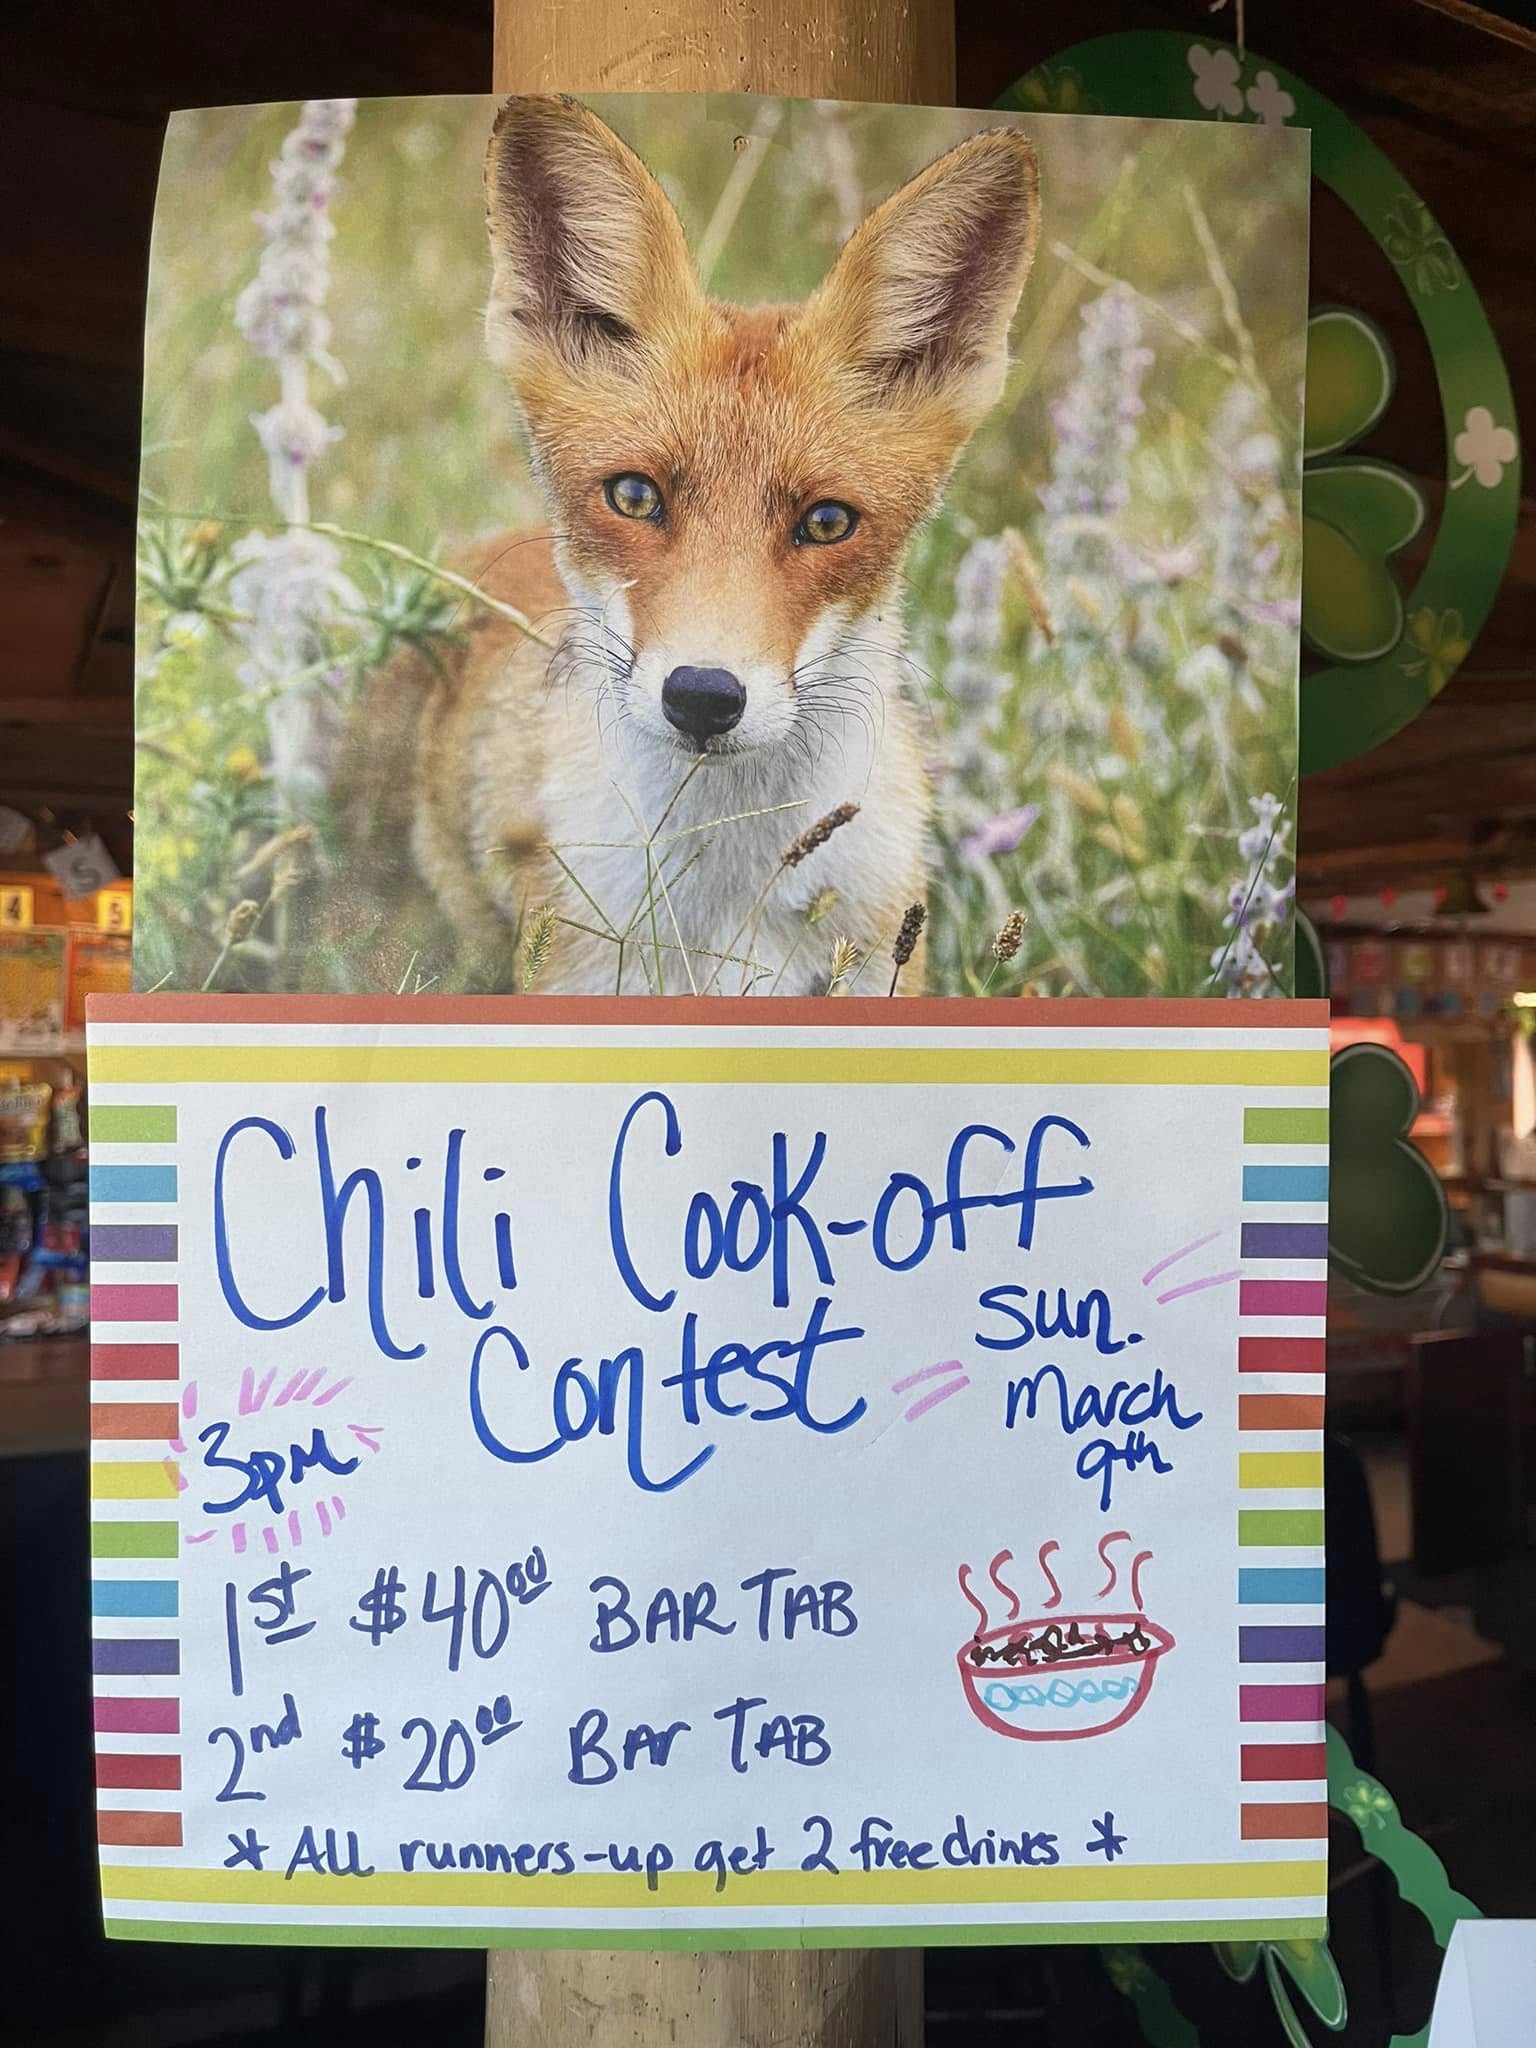 Chili Cook-off
Contest
Sun.
March
9th
3pm
1st $40.00 BAR TAB
2nd $20.00 BAr TAB
* ALL runners-up get 2 free drinks *
4
5
S